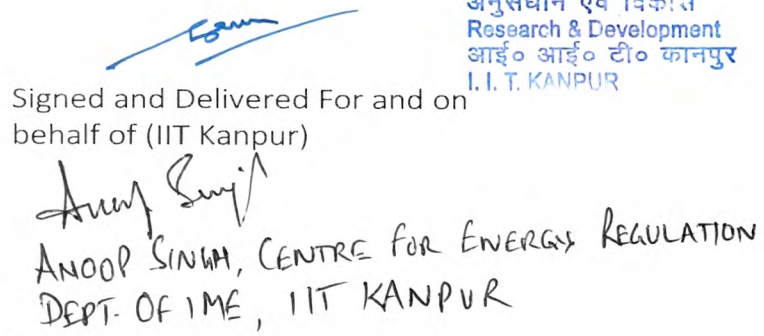 अनुसंधान एवं विकास
Research & Development
आई० आई० टी० कानपुर
I. I. T. KANPUR
Signed and Delivered For and on
behalf of (IIT Kanpur)
Anoop Singh
ANOOP SINGH, CENTRE FOR ENERGY REGULATION
DEPT. OF IME, IIT KANPUR